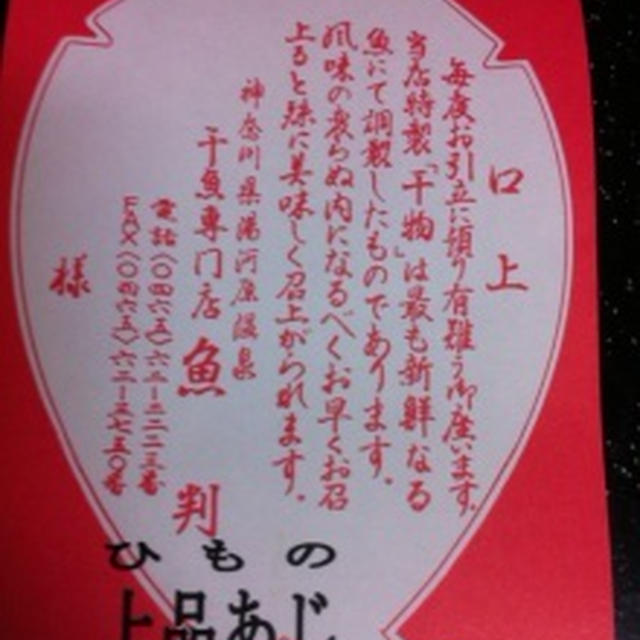 口上
毎度お引立に預り有難う御座います。
当店特製「干物」は最も新鮮なる
魚にて調製したものであります。
風味の変らぬ内になるべくお早くお召
上ると殊に美味しく召上がられます。
神奈川県湯河原温泉
干魚専門店 魚判
電話(〇四六五)六二-二二二三番
FAX(〇四六五)六二-三七五〇番
様
ひもの
上品あじ